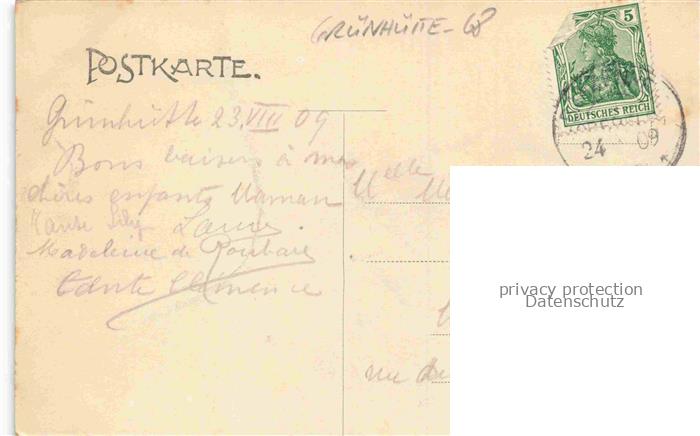 GRÜNHÜTTE - 68
POSTKARTE.
5
DEUTSCHES REICH
24 09
Grünhütte 23. VIII 09
Bons baisers à mes
chères enfants Maman
Laure.
Madeleine de Roubaix
tante Clémence
Melle
rue de
privacy protection
Datenschutz